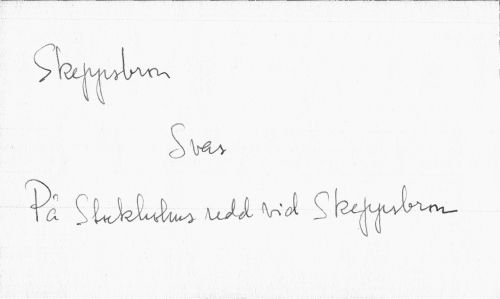 Skeppsbron
Svea
På Stockholms redd vid Skeppsbron